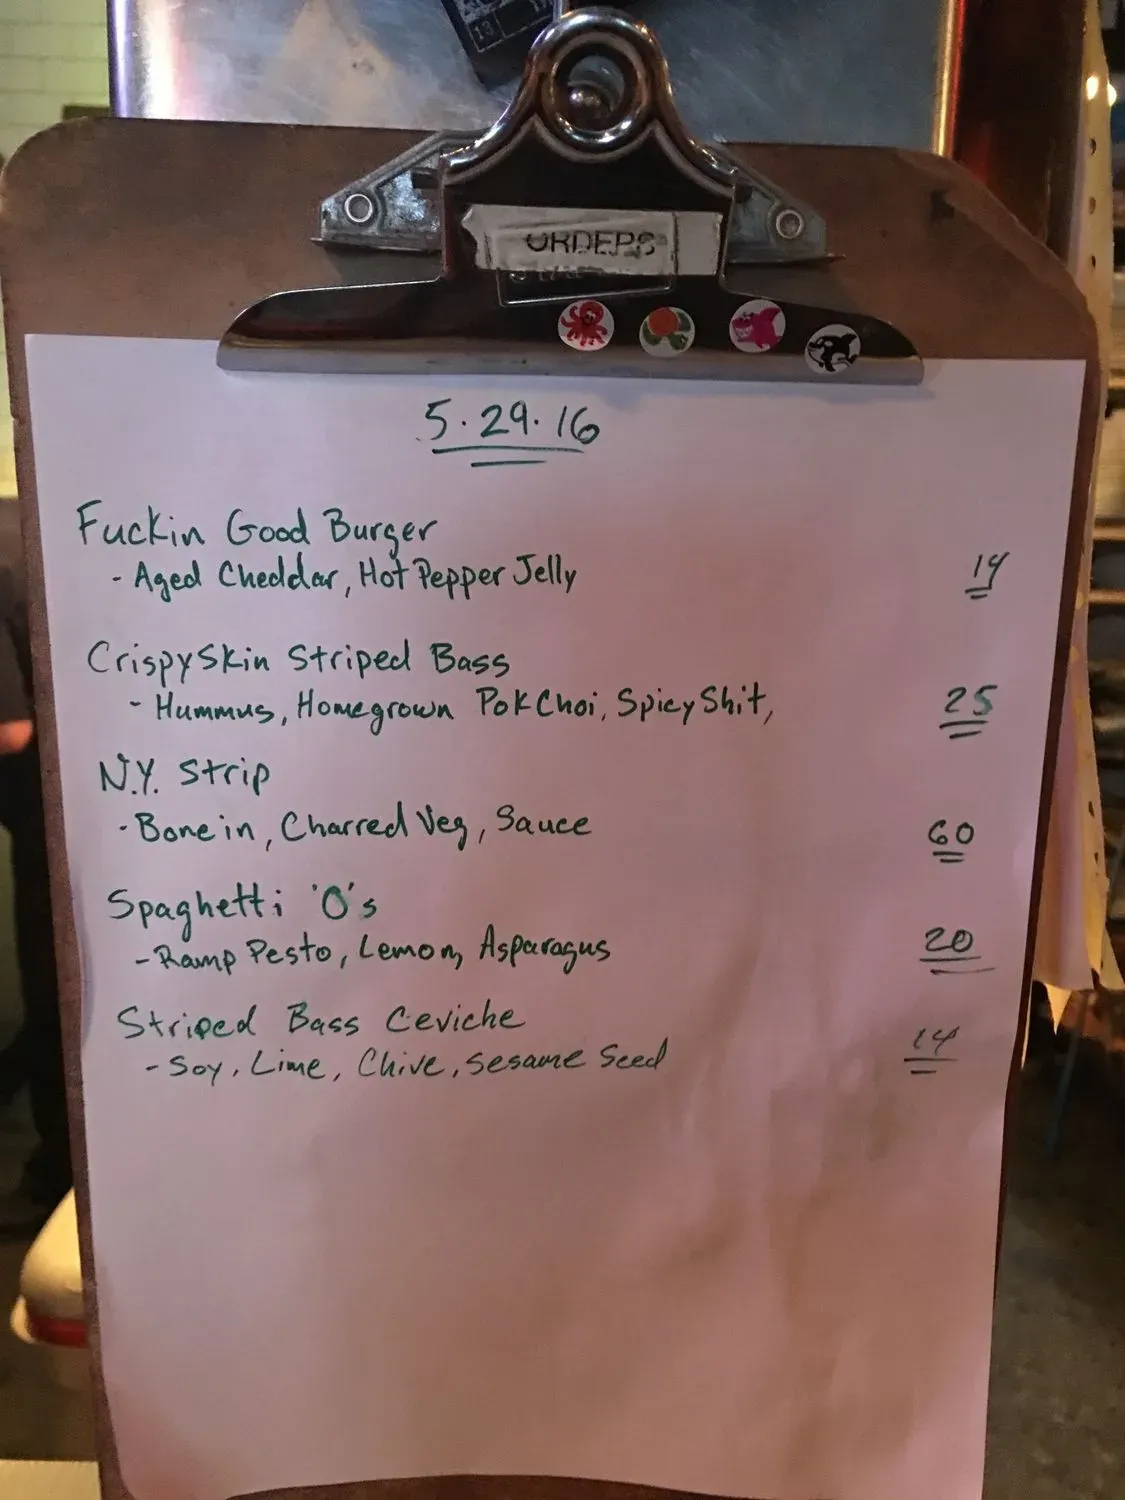 ORDERS
5.29.16
Fuckin Good Burger
- Aged Cheddar, Hot Pepper Jelly 14
Crispy Skin Striped Bass
- Hummus, Homegrown Pok Choi, Spicy Shit, 25
N.Y. Strip
- Bone in, Charred Veg, Sauce 60
Spaghetti 'O's
- Ramp Pesto, Lemon, Asparagus 20
Striped Bass Ceviche
- Soy, Lime, Chive, Sesame Seed 14